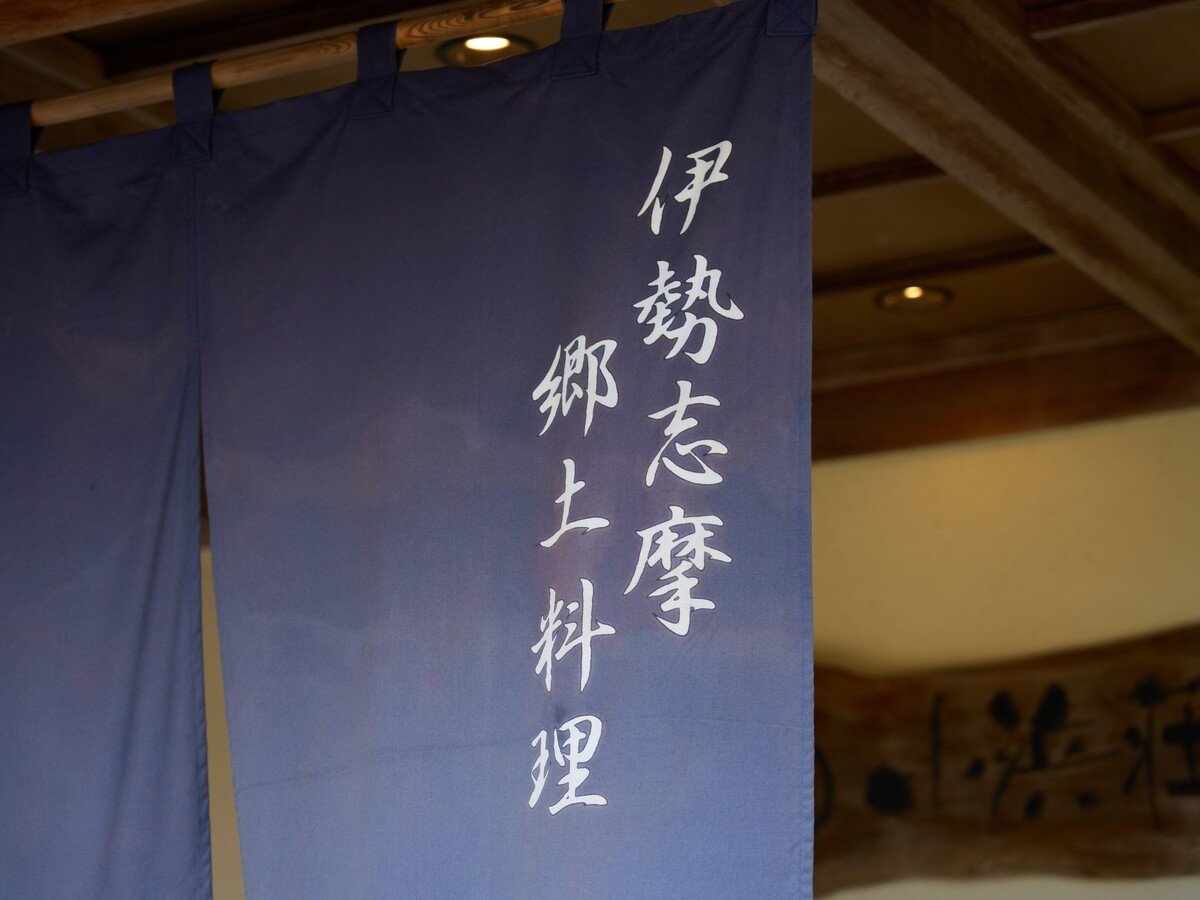 伊勢志摩
郷土料理